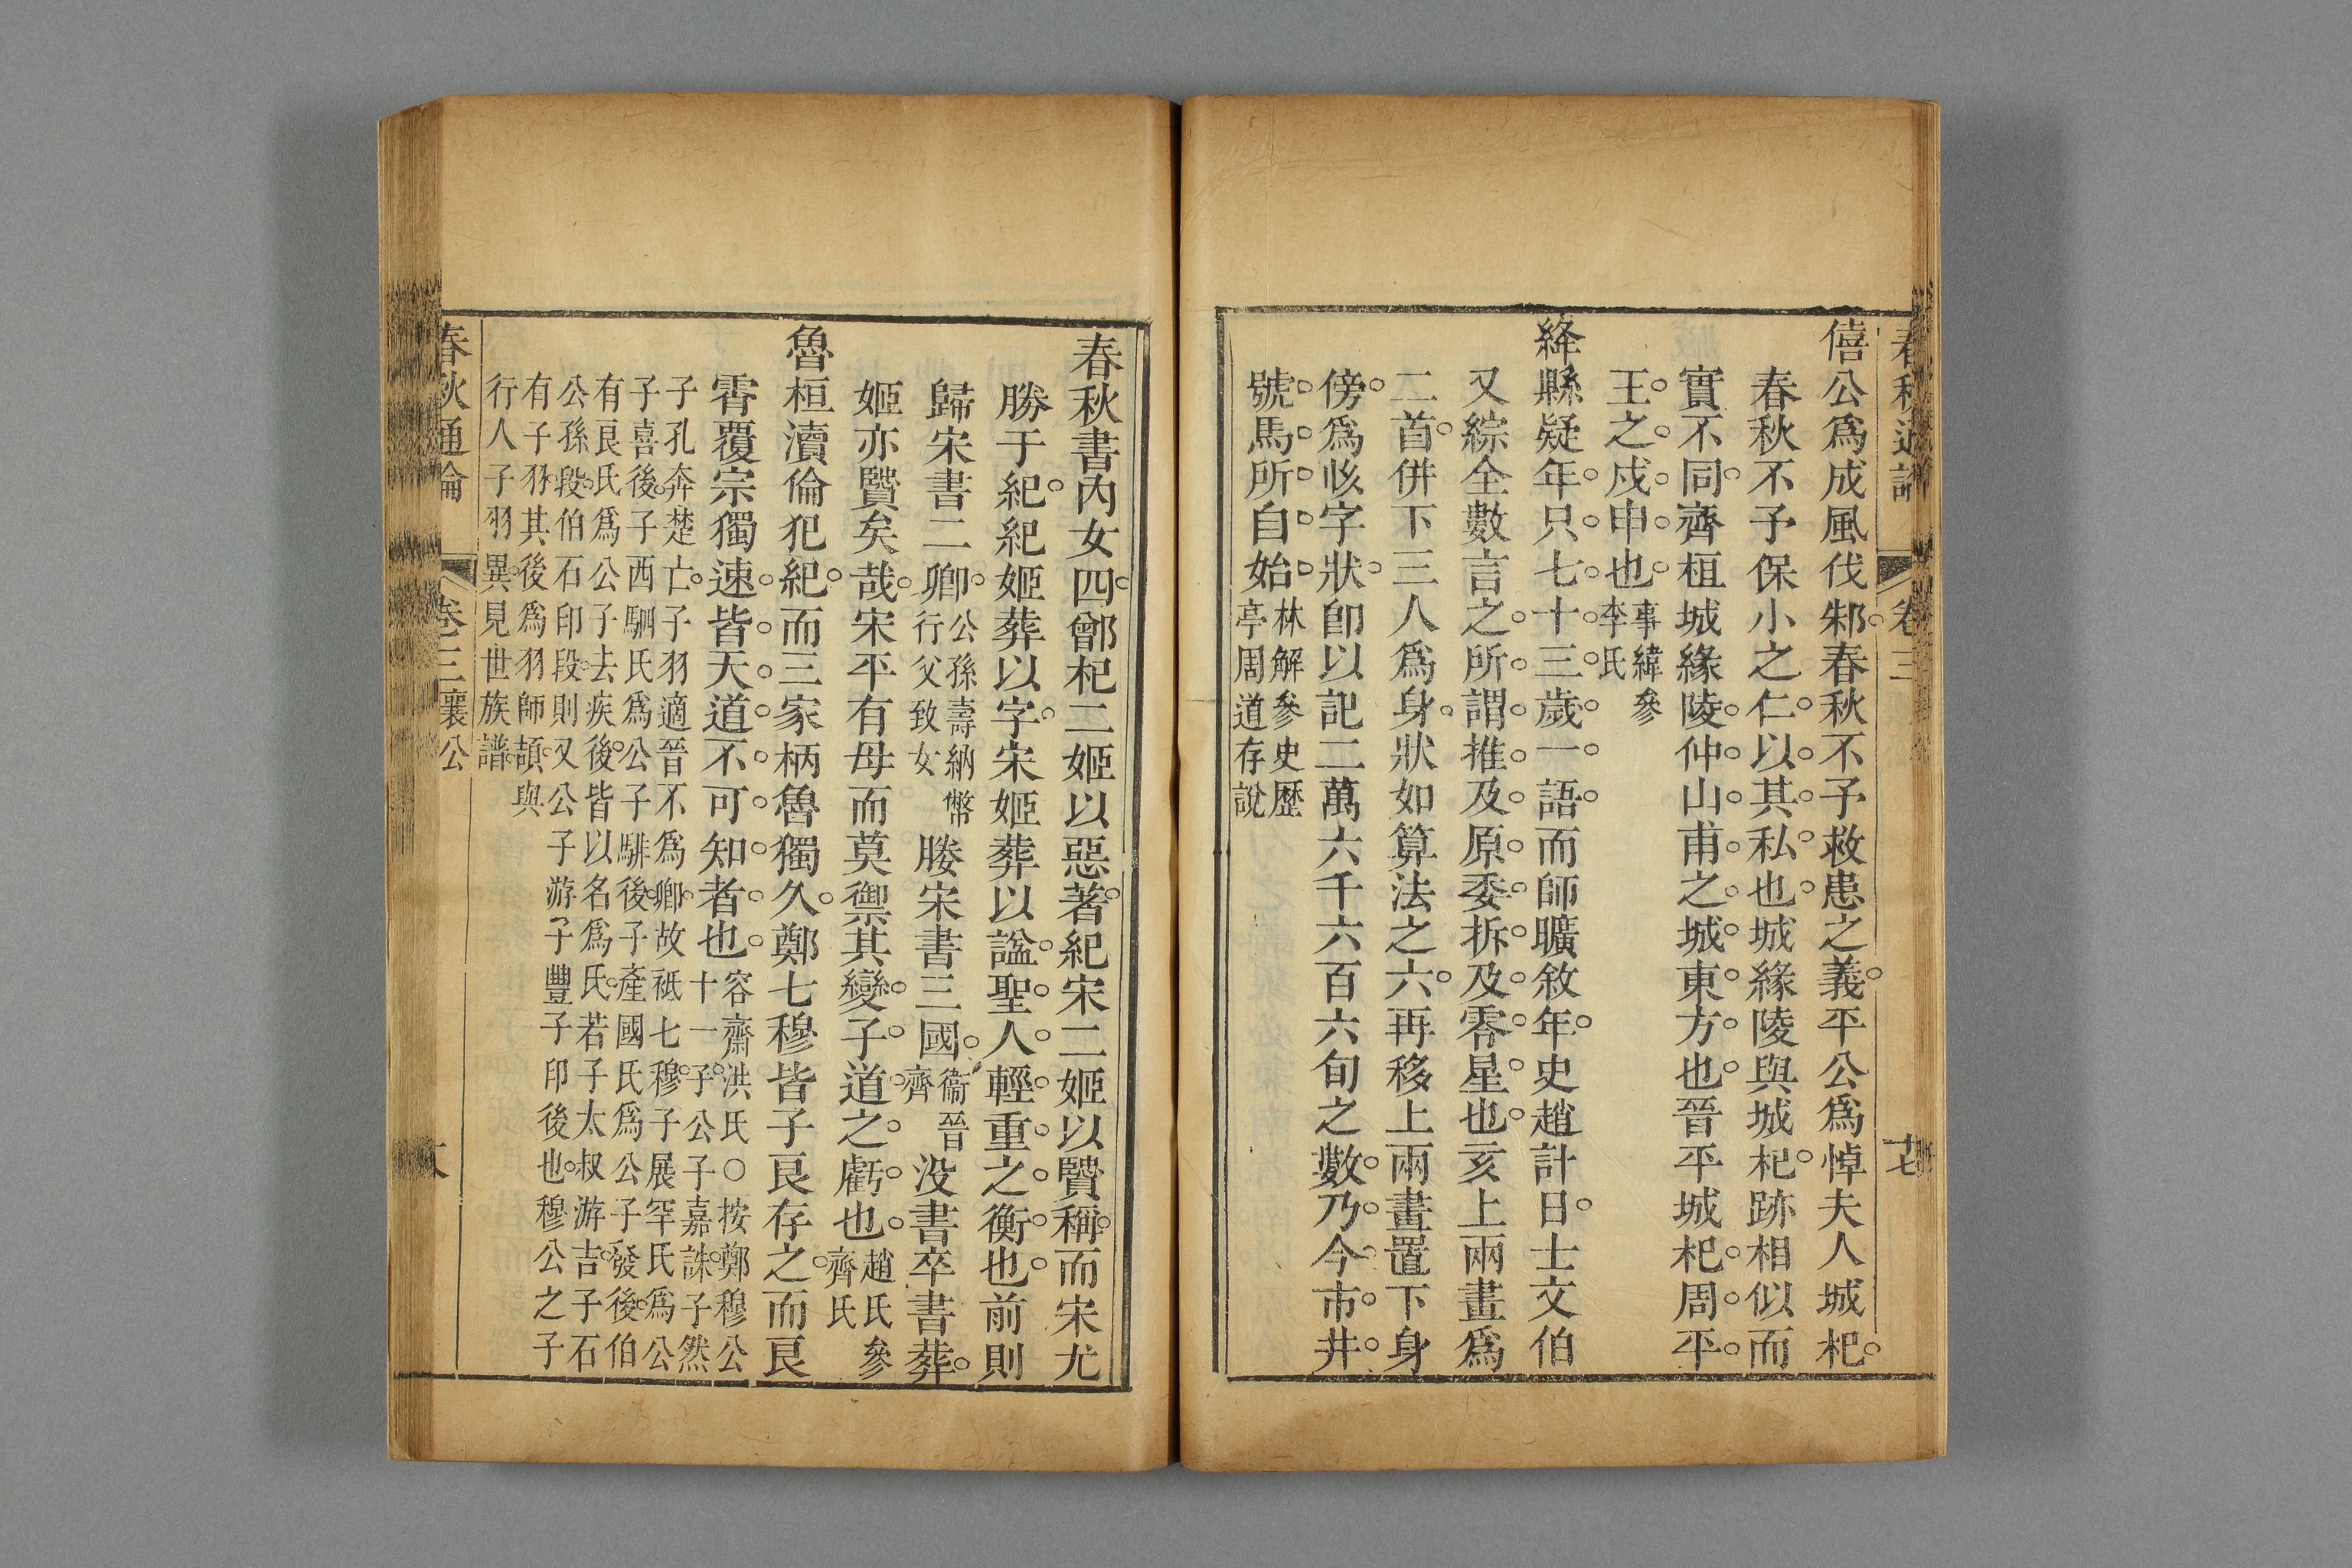 僖公爲成風伐邾春秋不予救患之義平公爲悼夫人城杞
春秋不予保小之仁以其私也城緣陵與城杞跡相似而
實不同齊桓城緣陵仲山甫之城東方也晉平城杞周平
王之戍申也
事緯參
李氏
絳縣疑年只七十三歲一語而師曠敘年史趙計日士文伯
又綜全數言之所謂推及原委拆及零星也亥上兩畫爲
二首併下三人爲身狀如算法之六再移上兩畫置下身
傍爲㑾字狀卽以記二萬六千六百六旬之數乃今市井
號馬所自始
林解參史歷
亭周道存說
春秋書內女四鄫杞二姬以惡著紀宋二姬以賢稱而宋尤
勝于紀紀姬葬以字宋姬葬以諡聖人輕重之衡也前則
歸宋書二卿
公孫壽納幣
行父致女
媵宋書三國
衞晉
齊
没書卒書葬
姬亦賢矣哉宋平有母而莫禦其變子道之虧也
趙氏參
齊氏
魯桓瀆倫犯紀而三家柄魯獨久鄭七穆皆子良存之而良
霄覆宗獨速皆天道不可知者也
容齋洪氏○按鄭穆公
十一子公子嘉誅子然
子孔奔楚亡子羽適晉不爲卿故祗七穆子展罕氏爲公
子喜後子西駟氏爲公子騑後子產國氏爲公子發後伯
有良氏爲公子去疾後皆以名爲氏若子太叔游吉子石
公孫段伯石印段則又公子游子豐子印後也穆公之子
有子羽其後爲羽師頡與
行人子羽異見世族譜
春秋通論
卷三襄公